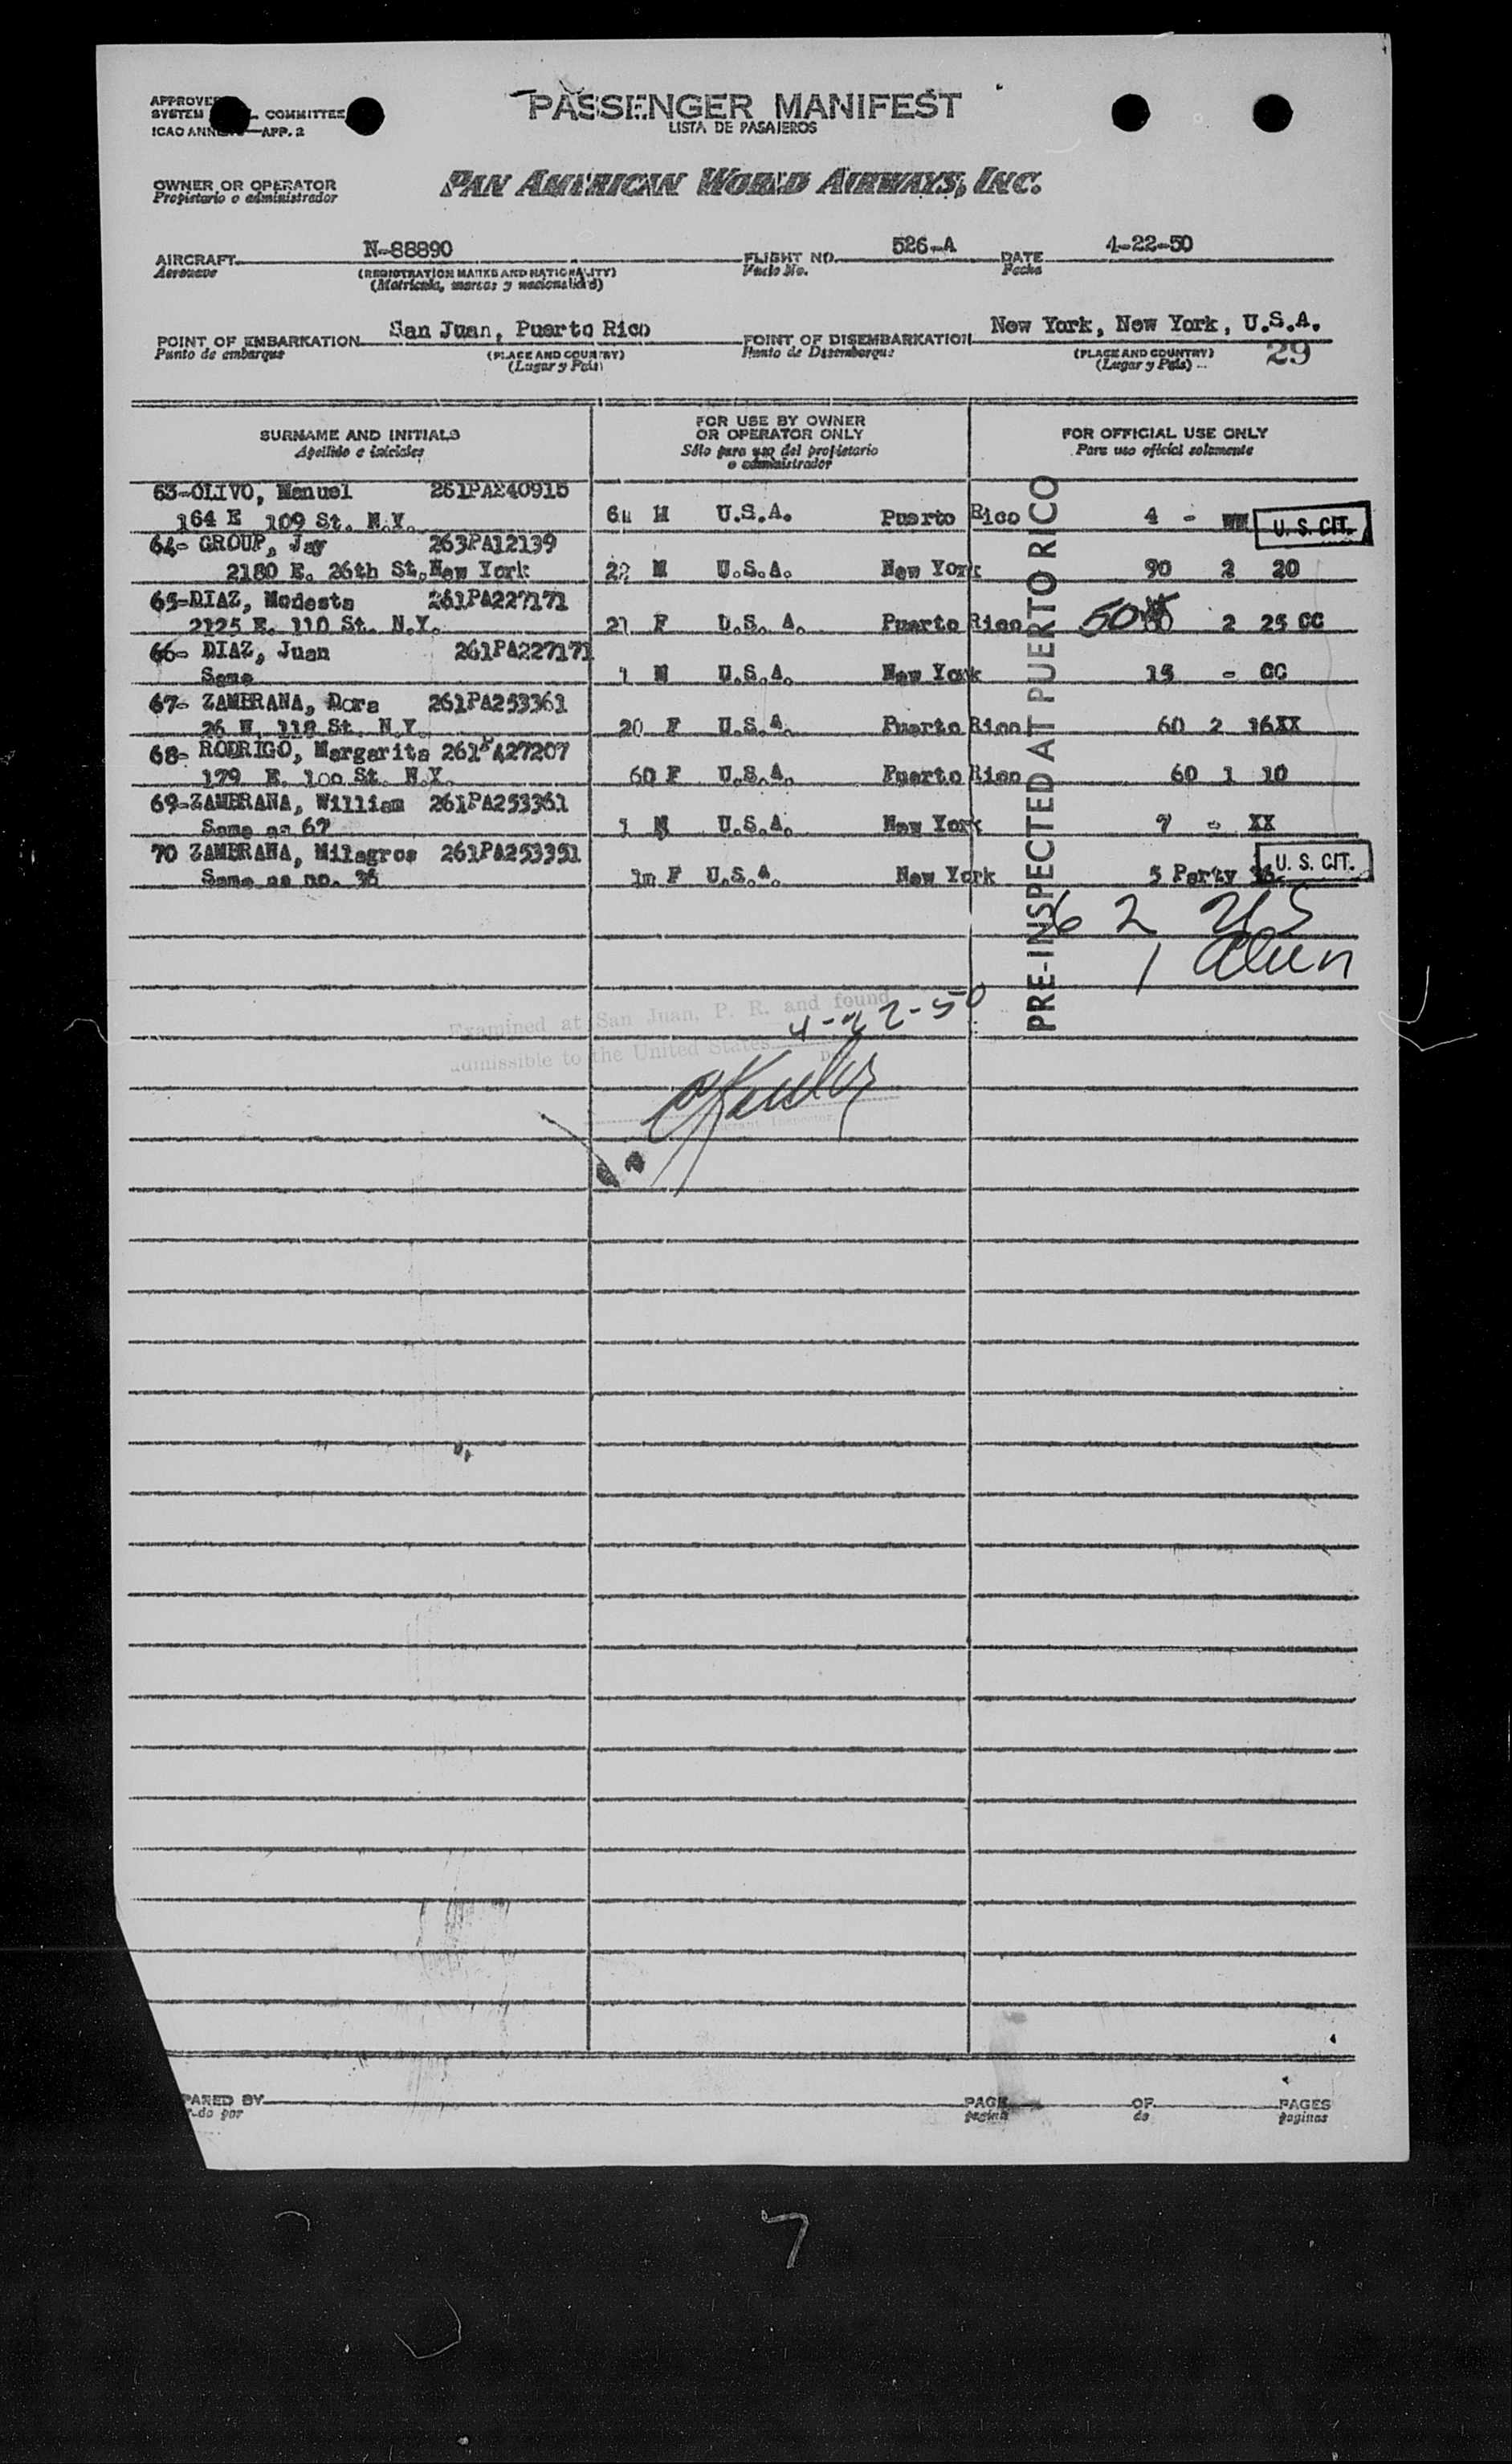 APPROVED COMMITTEE
SYSTEM
ICAO ANNEX —APP. 2
PASSENGER MANIFEST
LISTA DE PASAJEROS
OWNER OR OPERATOR
Propietario o administrador
PAN AMERICAN WORLD AIRWAYS, INC.
AIRCRAFT N-88890 FLIGHT NO. 526-A DATE 4-22-50
Aeronave (REGISTRATION MARKS AND NATIONALITY) Vuelo No. Fecha
(Matricula, marcas y nacionalidad)
POINT OF EMBARKATION San Juan, Puerto Rico POINT OF DISEMBARKATION New York, New York, U.S.A.
Punto de embarque (PLACE AND COUNTRY) Punto de Desembarque (PLACE AND COUNTRY) 29
(Lugar y País) (Lugar y País)
SURNAME AND INITIALS FOR USE BY OWNER OR OPERATOR ONLY FOR OFFICIAL USE ONLY
Apellido e iniciales Sólo para uso del propietario o administrador Para uso oficial solamente
63-OLIVO, Manuel 261PA240915
164 E 109 St. N.Y. M U.S.A. Puerto Rico 4 - U. S. CIT.
64- GROUP, Jay 263PA12139
2180 E. 26th St,New York 22 M U.S.A. New York 90 2 20
65-DIAZ, Modesta 261PA227171
2125 E. 110 St. N.Y. 21 F U.S. A. Puerto Rico 50 2 25 CC
66- DIAZ, Juan 261PA227171
Same 1 M U.S.A. New York 15 - CC
67- ZAMBRANA, Dora 261PA253361
26 W. 118 St. N.Y. 20 F U.S.A. Puerto Rico 60 2 16XX
68- RODRIGO, Margarita 261PA27207
179 E. 100 St. N.Y. 60 F U.S.A. Puerto Rico 60 1 10
69-ZAMBRANA, William 261PA253361
Same as 67 1 M U.S.A. New York 7 - XX
70 ZAMBRANA, Milagros 261PA253351
Same as no. 36 1m F U.S.A. New York 5 Party 36 U. S. CIT.
PRE-INSPECTED AT PUERTO RICO
62 US
1 alien
Examined at San Juan, P. R. and found
admissible to the United States 4-22-50
Immigrant Inspector
PARED BY PAGE OF PAGES
do por pagina de paginas
7